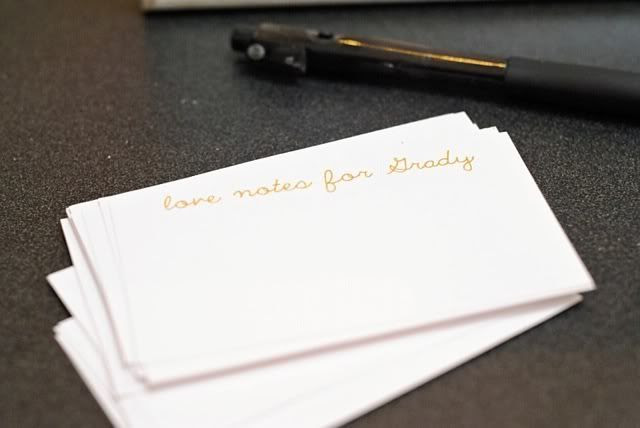 love notes for Grady